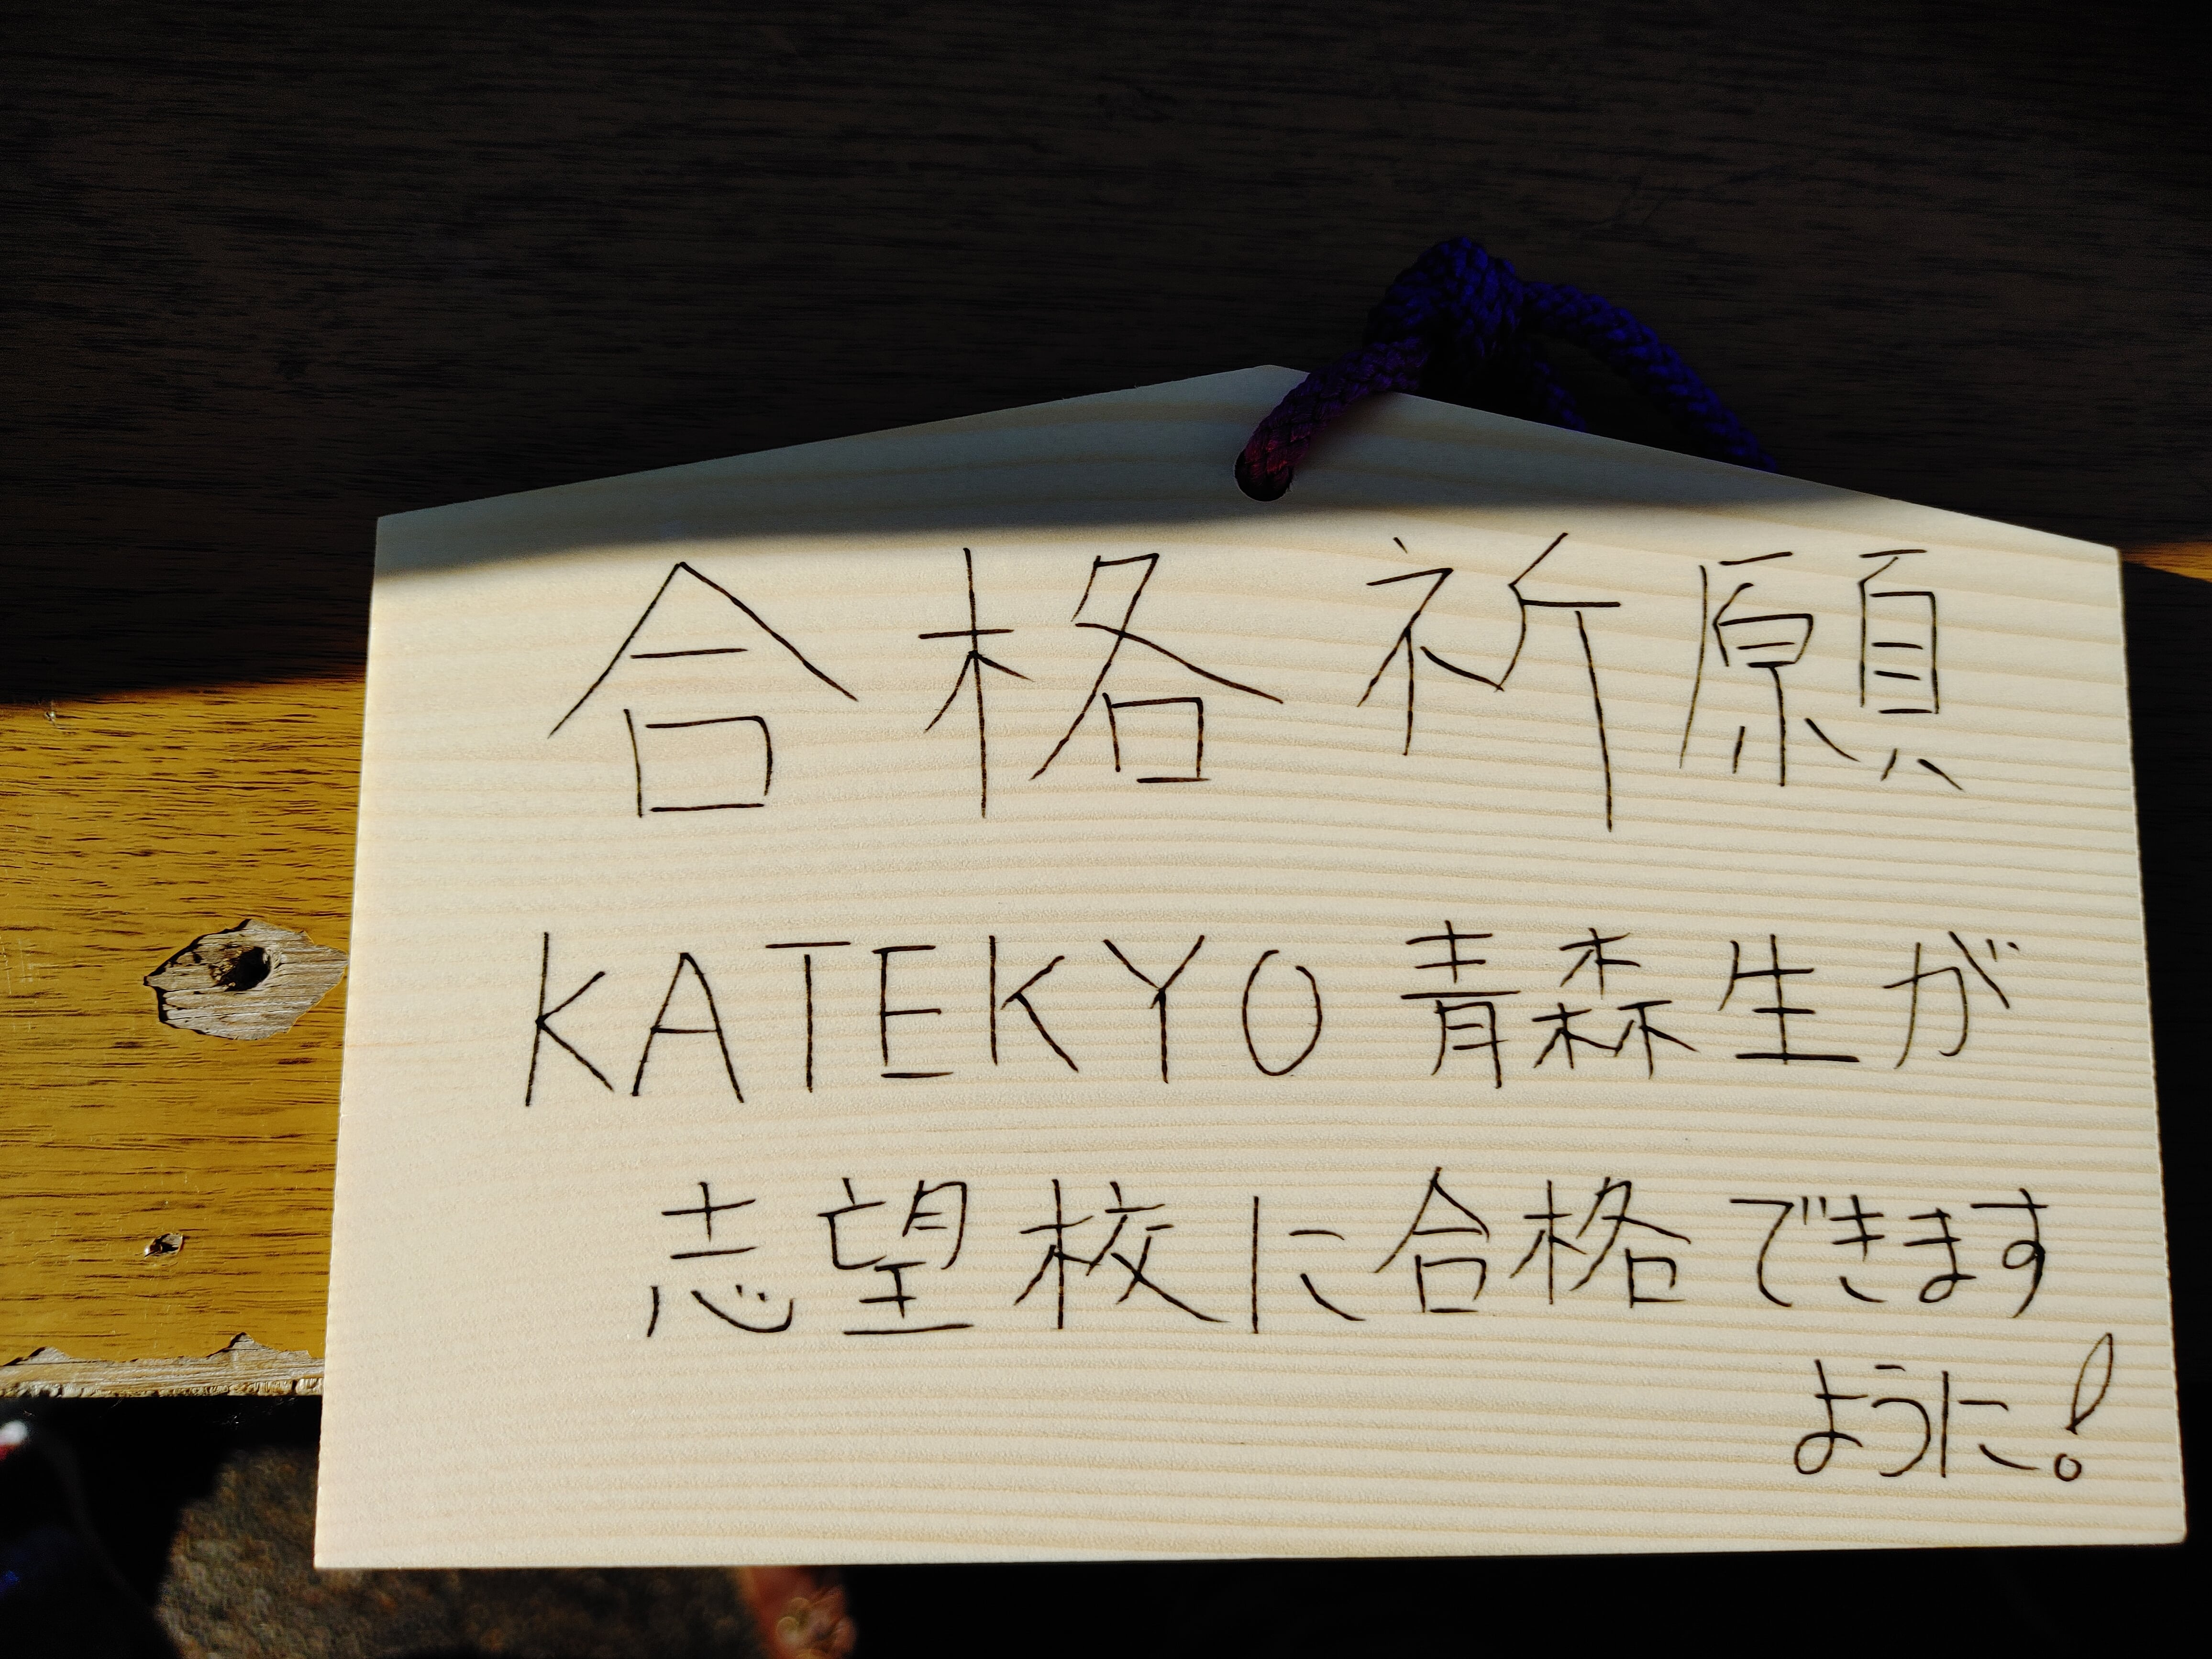 合格祈願
KATEKYO青森生が
志望校に合格できます
ように!